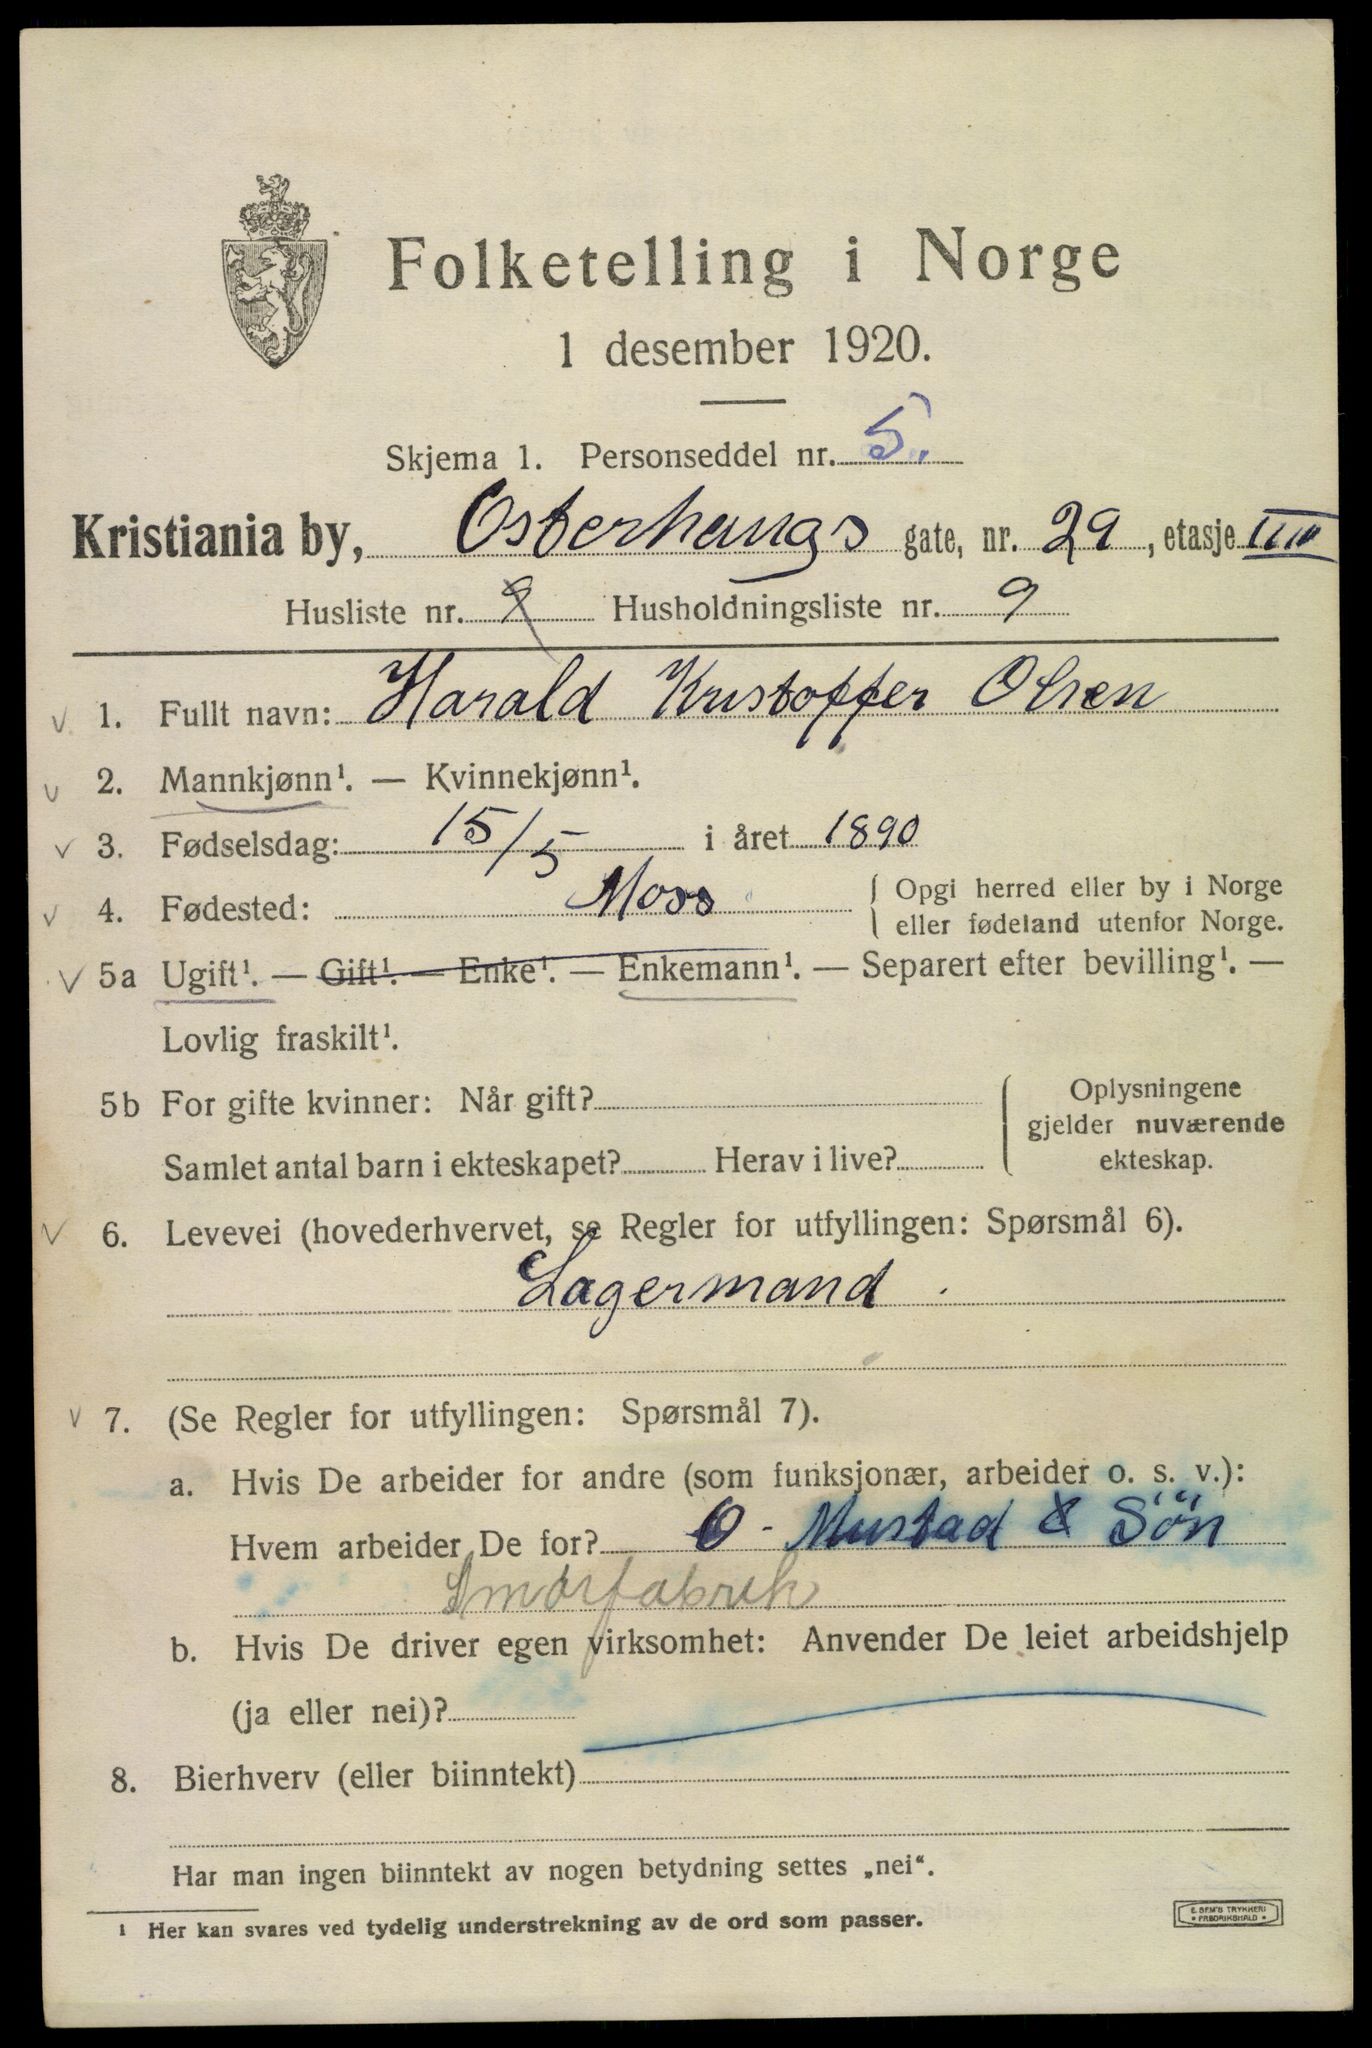 Folketelling i Norge
1 desember 1920.
Skjema 1. Personseddel nr. 5.
Kristiania by, Osterhaugs gate, nr. 29, etasje IIII
Husliste nr. 9 Husholdningsliste nr. 9
1. Fullt navn: Harald Kristoffer Olsen
2. Mannkjønn¹. — Kvinnekjønn¹.
3. Fødselsdag: 15/5 i året 1890
4. Fødested: Moss { Opgi herred eller by i Norge
eller fødeland utenfor Norge.
5a Ugift¹. — Gift¹. — Enke¹. — Enkemann¹. — Separert efter bevilling¹. —
Lovlig fraskilt¹.
5b For gifte kvinner: Når gift? { Oplysningene
gjelder nuværende
Samlet antal barn i ekteskapet? Herav i live? ekteskap.
6. Levevei (hovederhvervet, se Regler for utfyllingen: Spørsmål 6).
Lagermand
7. (Se Regler for utfyllingen: Spørsmål 7).
a. Hvis De arbeider for andre (som funksjonær, arbeider o. s. v.):
Hvem arbeider De for? O. Mustad & Sön
Smörfabrik
b. Hvis De driver egen virksomhet: Anvender De leiet arbeidshjelp
(ja eller nei)?
8. Bierhverv (eller biinntekt)
Har man ingen biinntekt av nogen betydning settes „nei“.
¹ Her kan svares ved tydelig understrekning av de ord som passer.
E. SEM'S TRYKKERI
• FREDRIKSHALD •